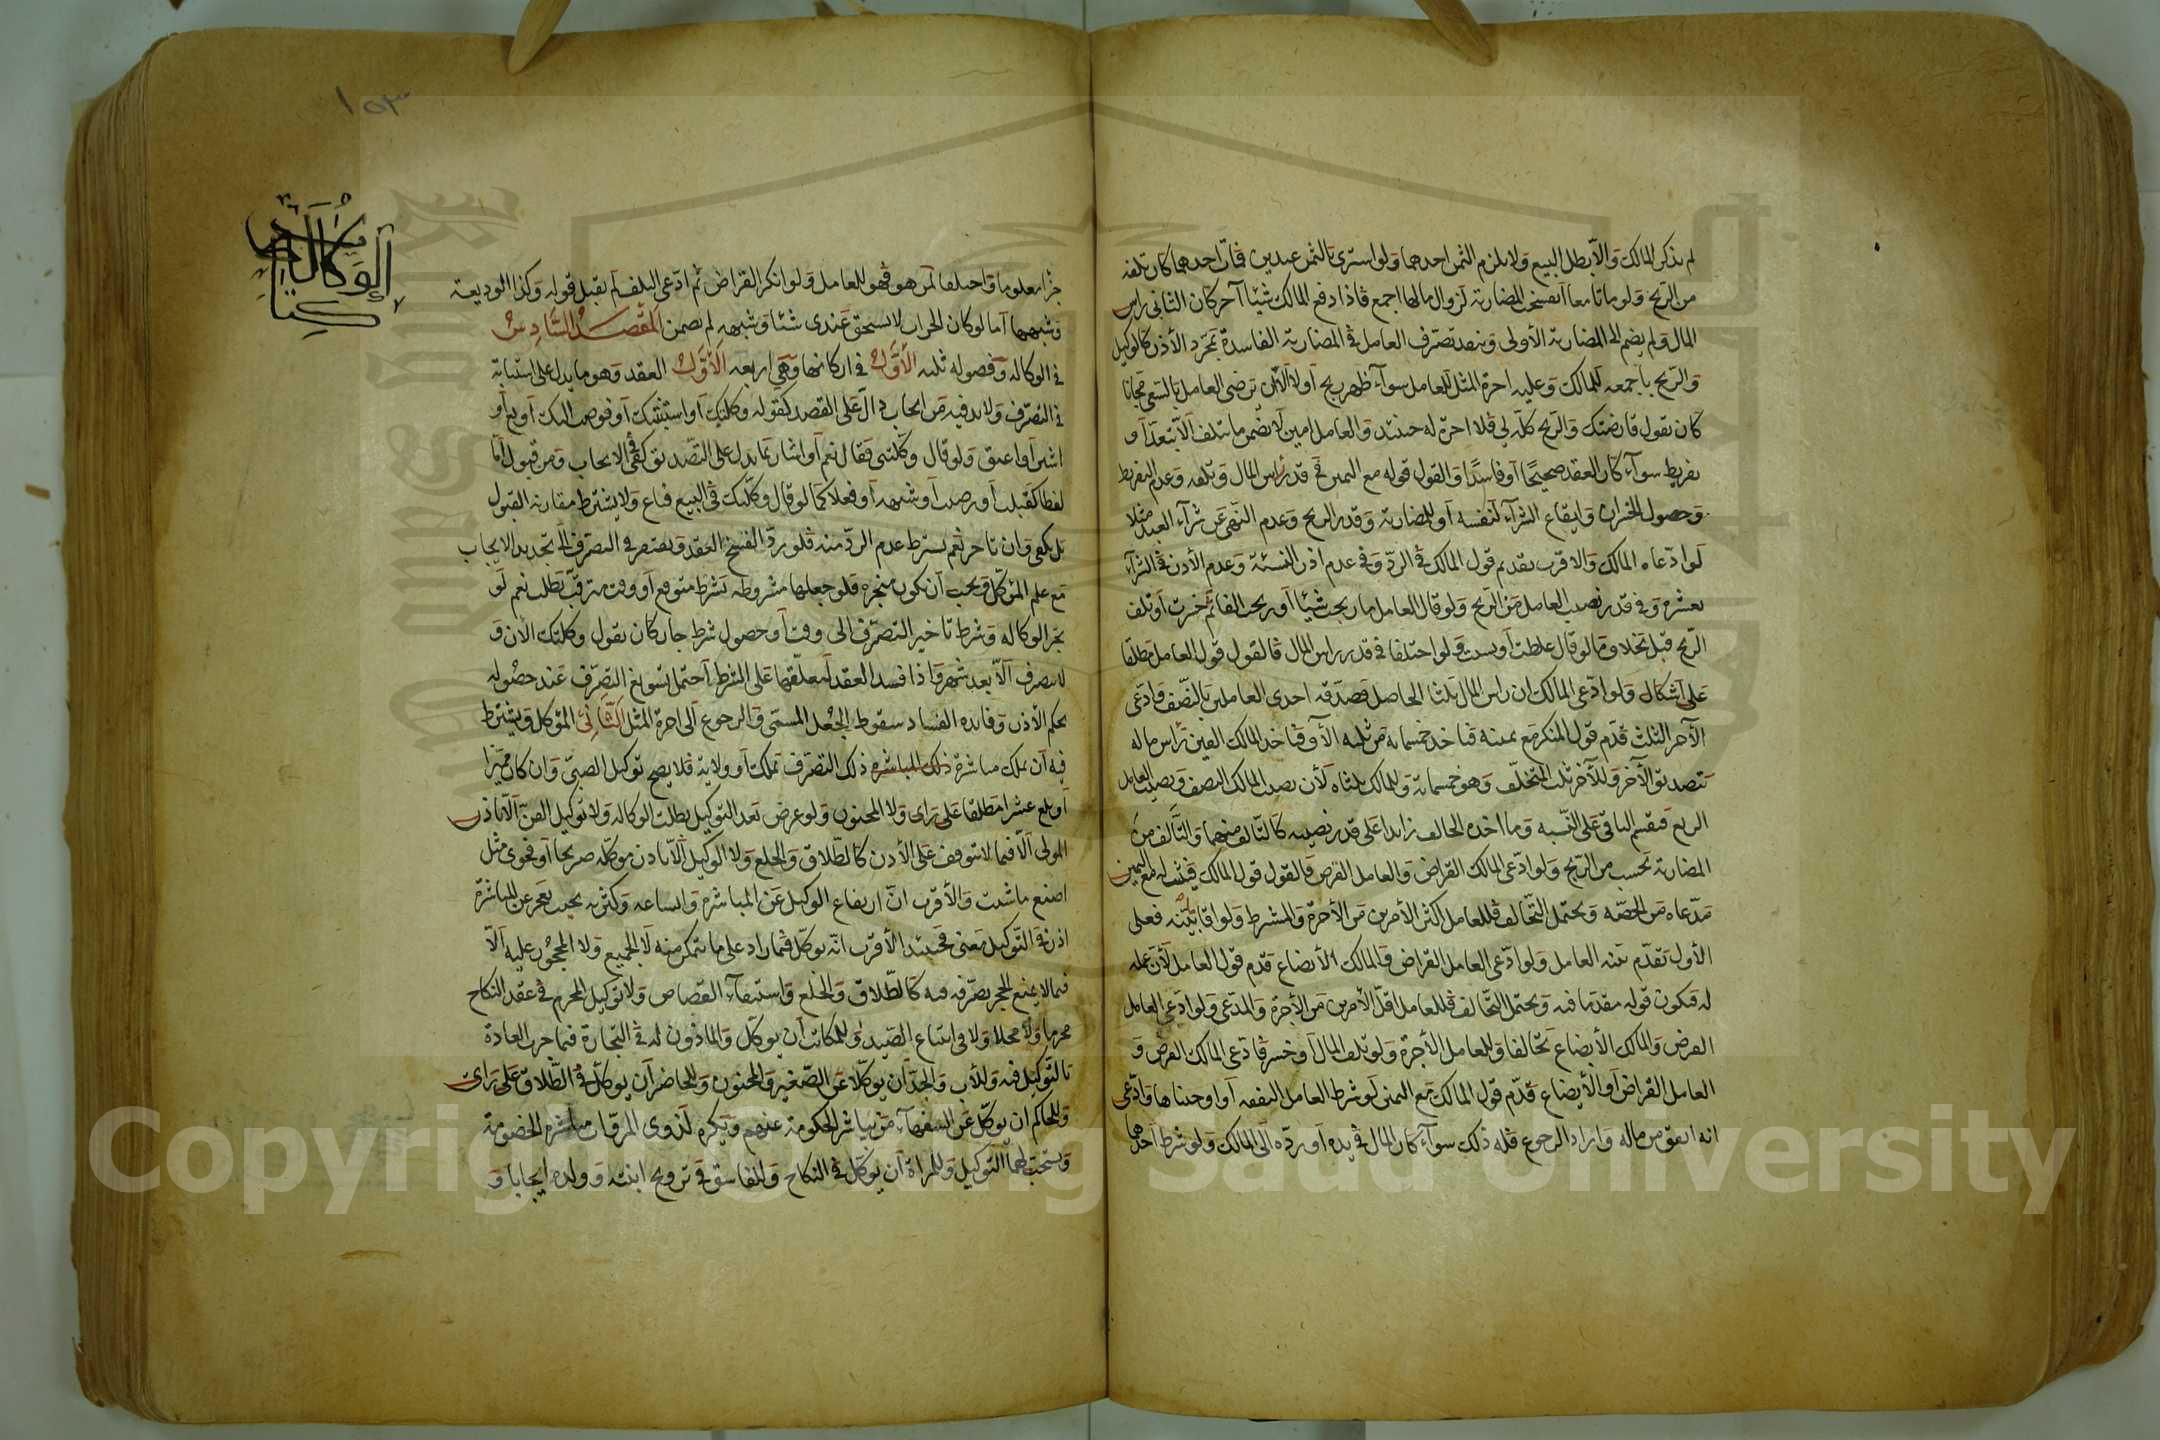 لم يذكر المالك والا بطل البيع ولا يلزم الثمن احدهما ولو اشترى بالثمن عبدين فمات احدهما كان تلفه
من الربح ولو ماتا معا انفسخت المضاربة لزوال مالها اجمع فاذا دفع المالك شيئا آخر كان الثاني راس
المال ولم يضم الى المضاربة الأولى وينفذ تصرف العامل في المضاربة الفاسدة بمجرد الأذن كالوكيل
والربح باجمعه للمالك وعليه اجرة المثل للعامل سوآء ظهر ربح أولا الا ان يرضى العامل بالسعي مجانا
كان يقول قارضتك والربح كله لي فلا اجرة له حينئذ والعامل امين لا يضمن ما يتلف الا بتعد او
تفريط سوآء كان العقد صحيحا أو فاسدا والقول قوله مع اليمين في قدر راس المال وتلفه وعدم التفريط
وحصول الخسران وايقاع الشرآء لنفسه أو للمضاربة وقدر الربح وعدم النهي عن شرآء العبد مثلا
لو ادعاه المالك والاقرب تقديم قول المالك في الرد وفي عدم اذن النسيئة وعدم الأذن في الشرآء
بعشرة وفي قدر نصيب العامل من الربح ولو قال العامل ما ربحت شيئا أو ربحت الفا ثم خسرت أو تلف
الربح قبل بخلاف ما لو قال غلطت أو نسيت ولو اختلفا في قدر راس المال فالقول قول العامل مطلقا
على اشكال ولو ادعى المالك ان راس المال ثلثا الحاصل فصدقه احدى العاملين بالنصف وادعى
الآخر الثلث قدم قول المنكر مع يمينه فياخذ خمسمائة من ثلثه الآف وياخذ المالك الفين راس ماله
بتصديق الآخر وللآخر ثلث المتخلف وهو خمسمائة وللمالك ثلثاه لأن نصيب المالك النصف ونصيب العامل
الربع فيقسم الباقي على النسبة وما اخذه الحالف زايدا على قدر نصيبه كالتالف منهما والتالف من
المضاربة يحسب من الربح ولو ادعى المالك القراض والعامل القرض فالقول قول المالك فيثبت له مع اليمين
مدعاه من الحصه ويحتمل التحالف فللعامل اكثر الأمرين من الأجرة والمشترط ولو اقاما بينه فعلى
الأول تقدم بينه العامل ولو ادعى العامل القراض والمالك الأبضاع قدم قول العامل لأن عمله
له فيكون قوله مقدما فيه ويحتمل التحالف فللعامل اقل الأمرين من الأجرة والمدعى ولو ادعى العامل
القرض والمالك الأبضاع تحالفا وللعامل الأجرة ولو تلف المال أو خسر فادعى المالك القرض و
العامل القراض أو الأبضاع قدم قول المالك مع اليمين لو شرط العامل النفقه أو اوجبناها وادعى
انه انفق من ماله واراد الرجوع فله ذلك سوآء كان المال في يده أو رده الى المالك ولو شرط احدهما
١٥٣
كتاب الوكالة
جزا معلوما واختلفا لمن هو فهو للعامل ولو انكر القراض ثم ادعى التلف لم يقبل قوله وكذا الوديعة
وشبهها اما لو كان الجواب لا يستحق عندي شيئا وشبهه لم يضمن المقصد السادس
في الوكاله وفصوله ثلثه الأول في اركانها وهي اربعه الأول العقد وهو ما يدل على استنابة
في التصرف ولابد فيه من ايجاب دال على القصد كقوله وكلتك أو استنبتك أو فوضت اليك أو بع أو
اشتر أو اعتق ولو قال وكلتني فقال نعم أو اشار بما يدل على التصديق كفى في الايجاب ومن قبول اما
لفظا كقبلت أو رضيت أو شبهه أو فعلا كما لو قال وكلتك في البيع فباع ولا يشترط مقارنة القبول
بل يكفي وان تاخر نعم يشترط عدم الرد منه فلو رد انفسخ العقد ويفتقر في التصرف الى تجديد الايجاب
مع علم الموكل ويجب أن يكون منجزه فلو جعلها مشروطه بشرط متوقع أو وقت مترقب بطلت نعم لو
نجز الوكاله وشرط تاخير التصرف الى وقت أو حصول شرط جاز كان يقول وكلتك الآن و
لا تتصرف الا بعد شهر واذا فسد العقد لمعلقها على الشرط احتمل تسويغ التصرف عند حصوله
بحكم الأذن وفائده الفساد سقوط الجعل المسمى والرجوع الى اجرة المثل الثاني الموكل ويشترط
فيه أن يملك مباشرة ذلك المباشرة ذلك التصرف بملك أو ولاية فلا يصح توكيل الصبي وان كان مميزا
أو بلغ عشرا مطلقا على راى ولا المجنون ولو عرض بعد التوكيل بطلت الوكاله ولا توكيل القن الا باذن
المولى الا فيما لا يتوقف على الأذن كالطلاق والخلع ولا الوكيل الا باذن موكله صريحا أو فحوى مثل
اصنع ما شئت والأقرب ان ارتفاع الوكيل عن المباشرة واتساعه وكثرته بحيث يعجز عن المباشرة
اذن في التوكيل معنى فحينئذ الأقرب انه يوكل فيما زاد على ما يتمكن منه لا الجميع ولا المحجور عليه الا
فيما لا يمنع الحجر تصرفه فيه كالطلاق والخلع واستيفاء القصاص ولا توكيل المحرم في عقد النكاح
محرما ولا محلا ولا في ابتياع الصيد وللمكاتب أن يوكل والماذون له في التجارة فيما جرت العادة
بالتوكيل فيه وللأب والجد أن يوكلا عن الصغير والمجنون وللحاضر أن يوكل في الطلاق على راى
وللحاكم ان يوكل عن السفهآء من يباشر الحكومة عنهم ويكره لذوى المروات مباشرة الخصومة
ويستحب لهما التوكيل وللمراة أن يوكل في النكاح وللفاسق في تزويج ابنته وولده ايجابا و
Copyright © King Saud University